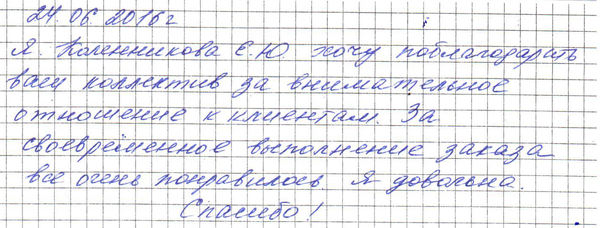 24.06.2016г
Я, Коленникова Е.Ю. хочу поблагодарить
ваш коллектив за внимательное
отношение к клиентам. За
своевременное выполнение заказа
все очень понравилось. Я довольна.
Спасибо!